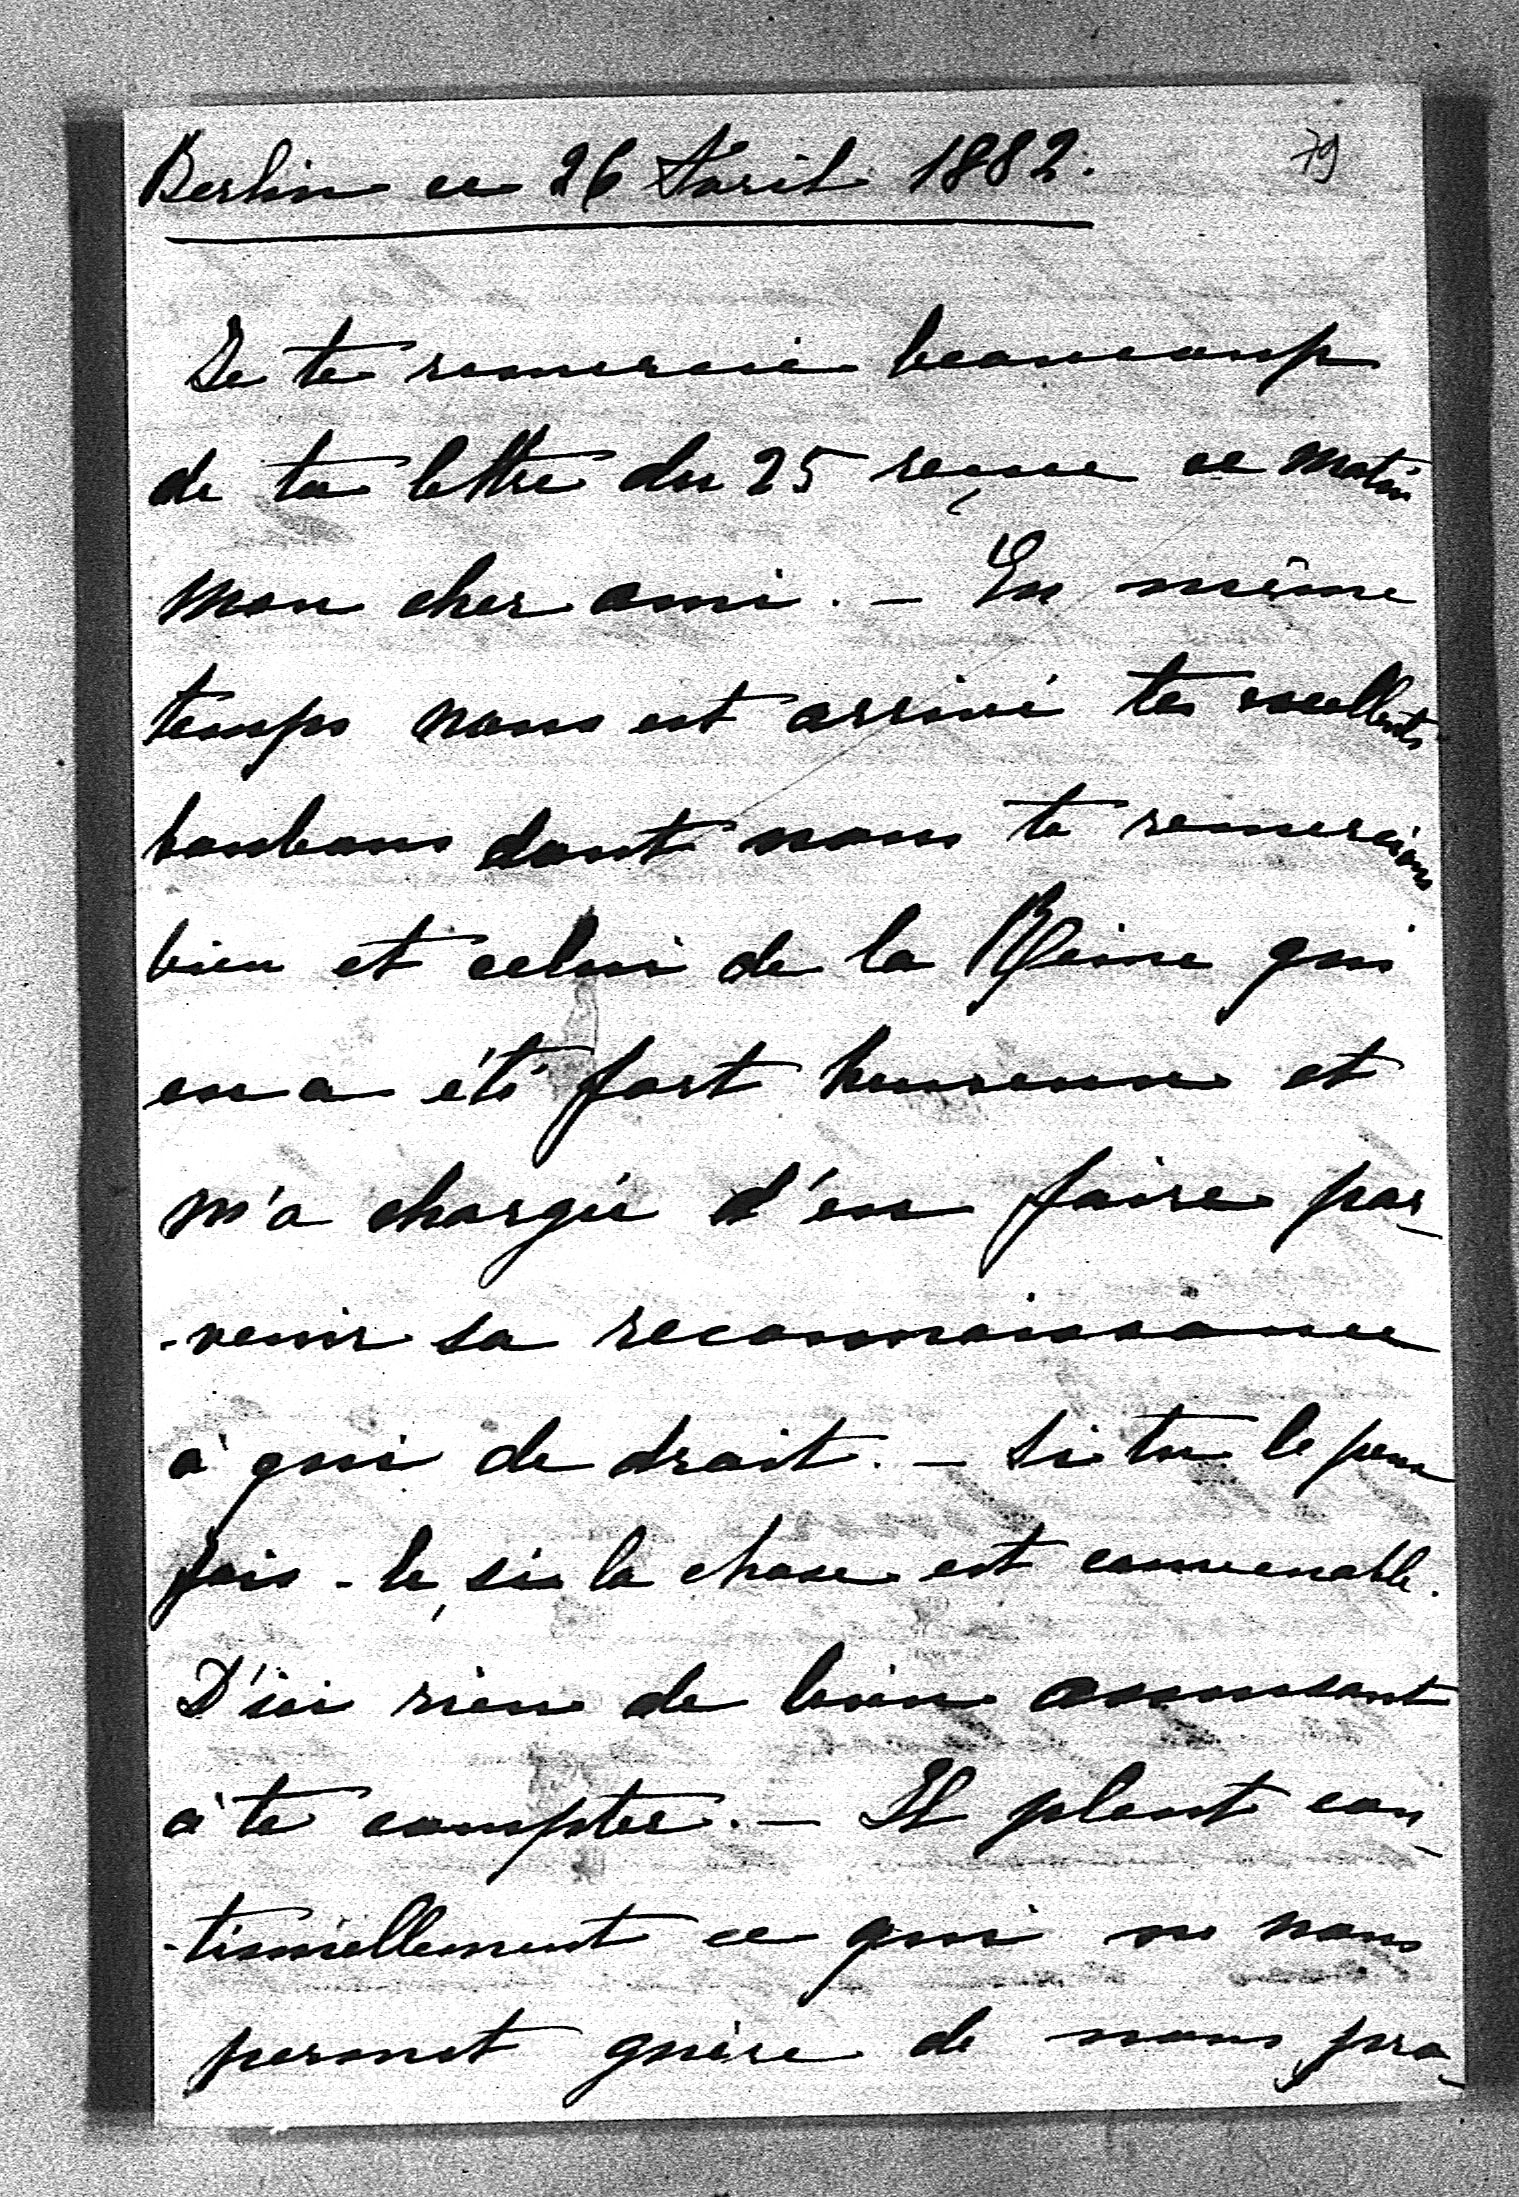 Berlin ce 26 Avril 1882.
79
Je te remercie beaucoup
de ta lettre du 25 reçue ce matin
mon cher ami. – En même
temps nous est arrivé tes excellents
bonbons dont nous te remercions
bien et celui de la Reine qui
en a été fort heureuse et
m'a chargée d'en faire par-
-venir sa reconnaissance
à qui de droit. – Si tu le peux
fais-le, si la chose est convenable.
D'ici rien de bien amusant
à te compter. – Il pleut con-
-tinuellement ce qui ne nous
permet guère de nous pro-